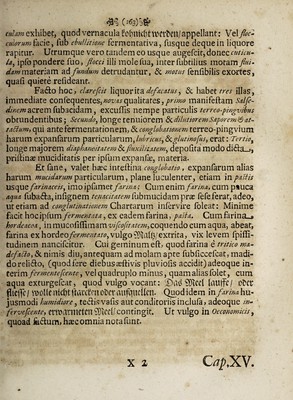 ❧ (163) ❧
culam exhibet, quod vernacula können nicht werden/ appellant: Vel flocculorum facie, sub ebullitione fermentativa, susque deque in liquore
rapitur. Utrumque vero tandem eo usque augescit, donec cuticula, ipso pondere suo, flocci illi mole sua, inter subtilius motam fluidam materiam ad fundum detrudantur, & motus sensibilis exortes,
quasi quiete resideant.
Facto hoc, clarescit liquor ita defæcatus, & habet tres illas,
immediate consequentes, novas qualitates, primo manifestam Salsedinem acrem subacidam, excussis nempe particulis terreo-pinguibus
obrundentibus; Secundo, longe tenuiorem & dilutiorem Saporem & attactum, qui ante fermentationem, & conglobationem terreo-pinguium
harum expansarum particularum, lubricus, & glutinosus, erat: Tertio,
longe majorem diaphaneitatem & fluxilitatem, deposita modo dicta
pristinæ muciditatis per ipsum expansæ, materia.
Et sane, valet hæc intestina conglobatio, expansarum alias
harum mucidarum particularum, plane luculenter, etiam in pastis
usque farinaceis, imo ipsamet farina: Cum enim farina, cum pauca
aqua subacta, insignem tenacitatem submucidam præ se ferat, adeo,
ut etiam ad conglutinationem Chartarum inservire soleat: Minime
facit hoc ipsum fermentata, ex eadem farina, pasta. Cum farina
hordeacea, in mucosissimam viscositatem, coquendo cum aqua, abeat,
farina ex hordeo fermentato, vulgo Maltz/ extrita, vix levem spissitudinem nanciscitur. Cui geminum est, quod farina è tritico madefacto, & nimis diu, antequam ad molam apte subsiccescat, madido relicto, (quod fere diebus æstivis pluviosis accidit) adeoque interim fermentescente, vel quadruplo minus, quam alias solet, cum
aqua exturgescat, quod vulgo vocant: Das Meel lauffe/ oder
fliesse/ wolle nicht starcken oder auffquellen. Quod idem in farina hujusmodi humidiore, tectis vasis aut conditoriis inclusa, adeoque infervescente, erwarmeten Meel/ contingit. Ut vulgo in Oeconomicis,
quoad factum, hæc omnia nota sunt.
X 2 Cap. XV.